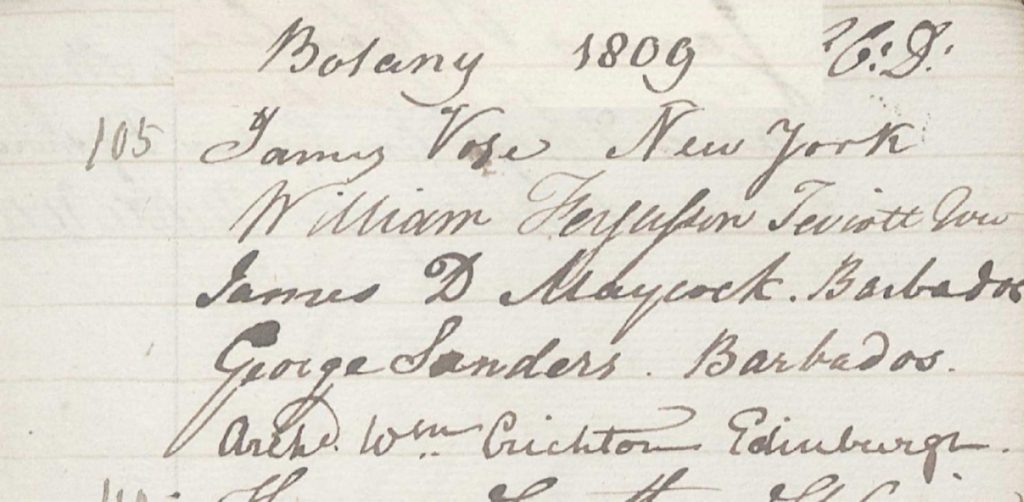 Botany 1809 C: D:
105 James Vose New York
William Fergusson Teviott Row
James D Maycock. Barbados
George Sanders. Barbados.
Archd. Wm. Crichton Edinburgh.